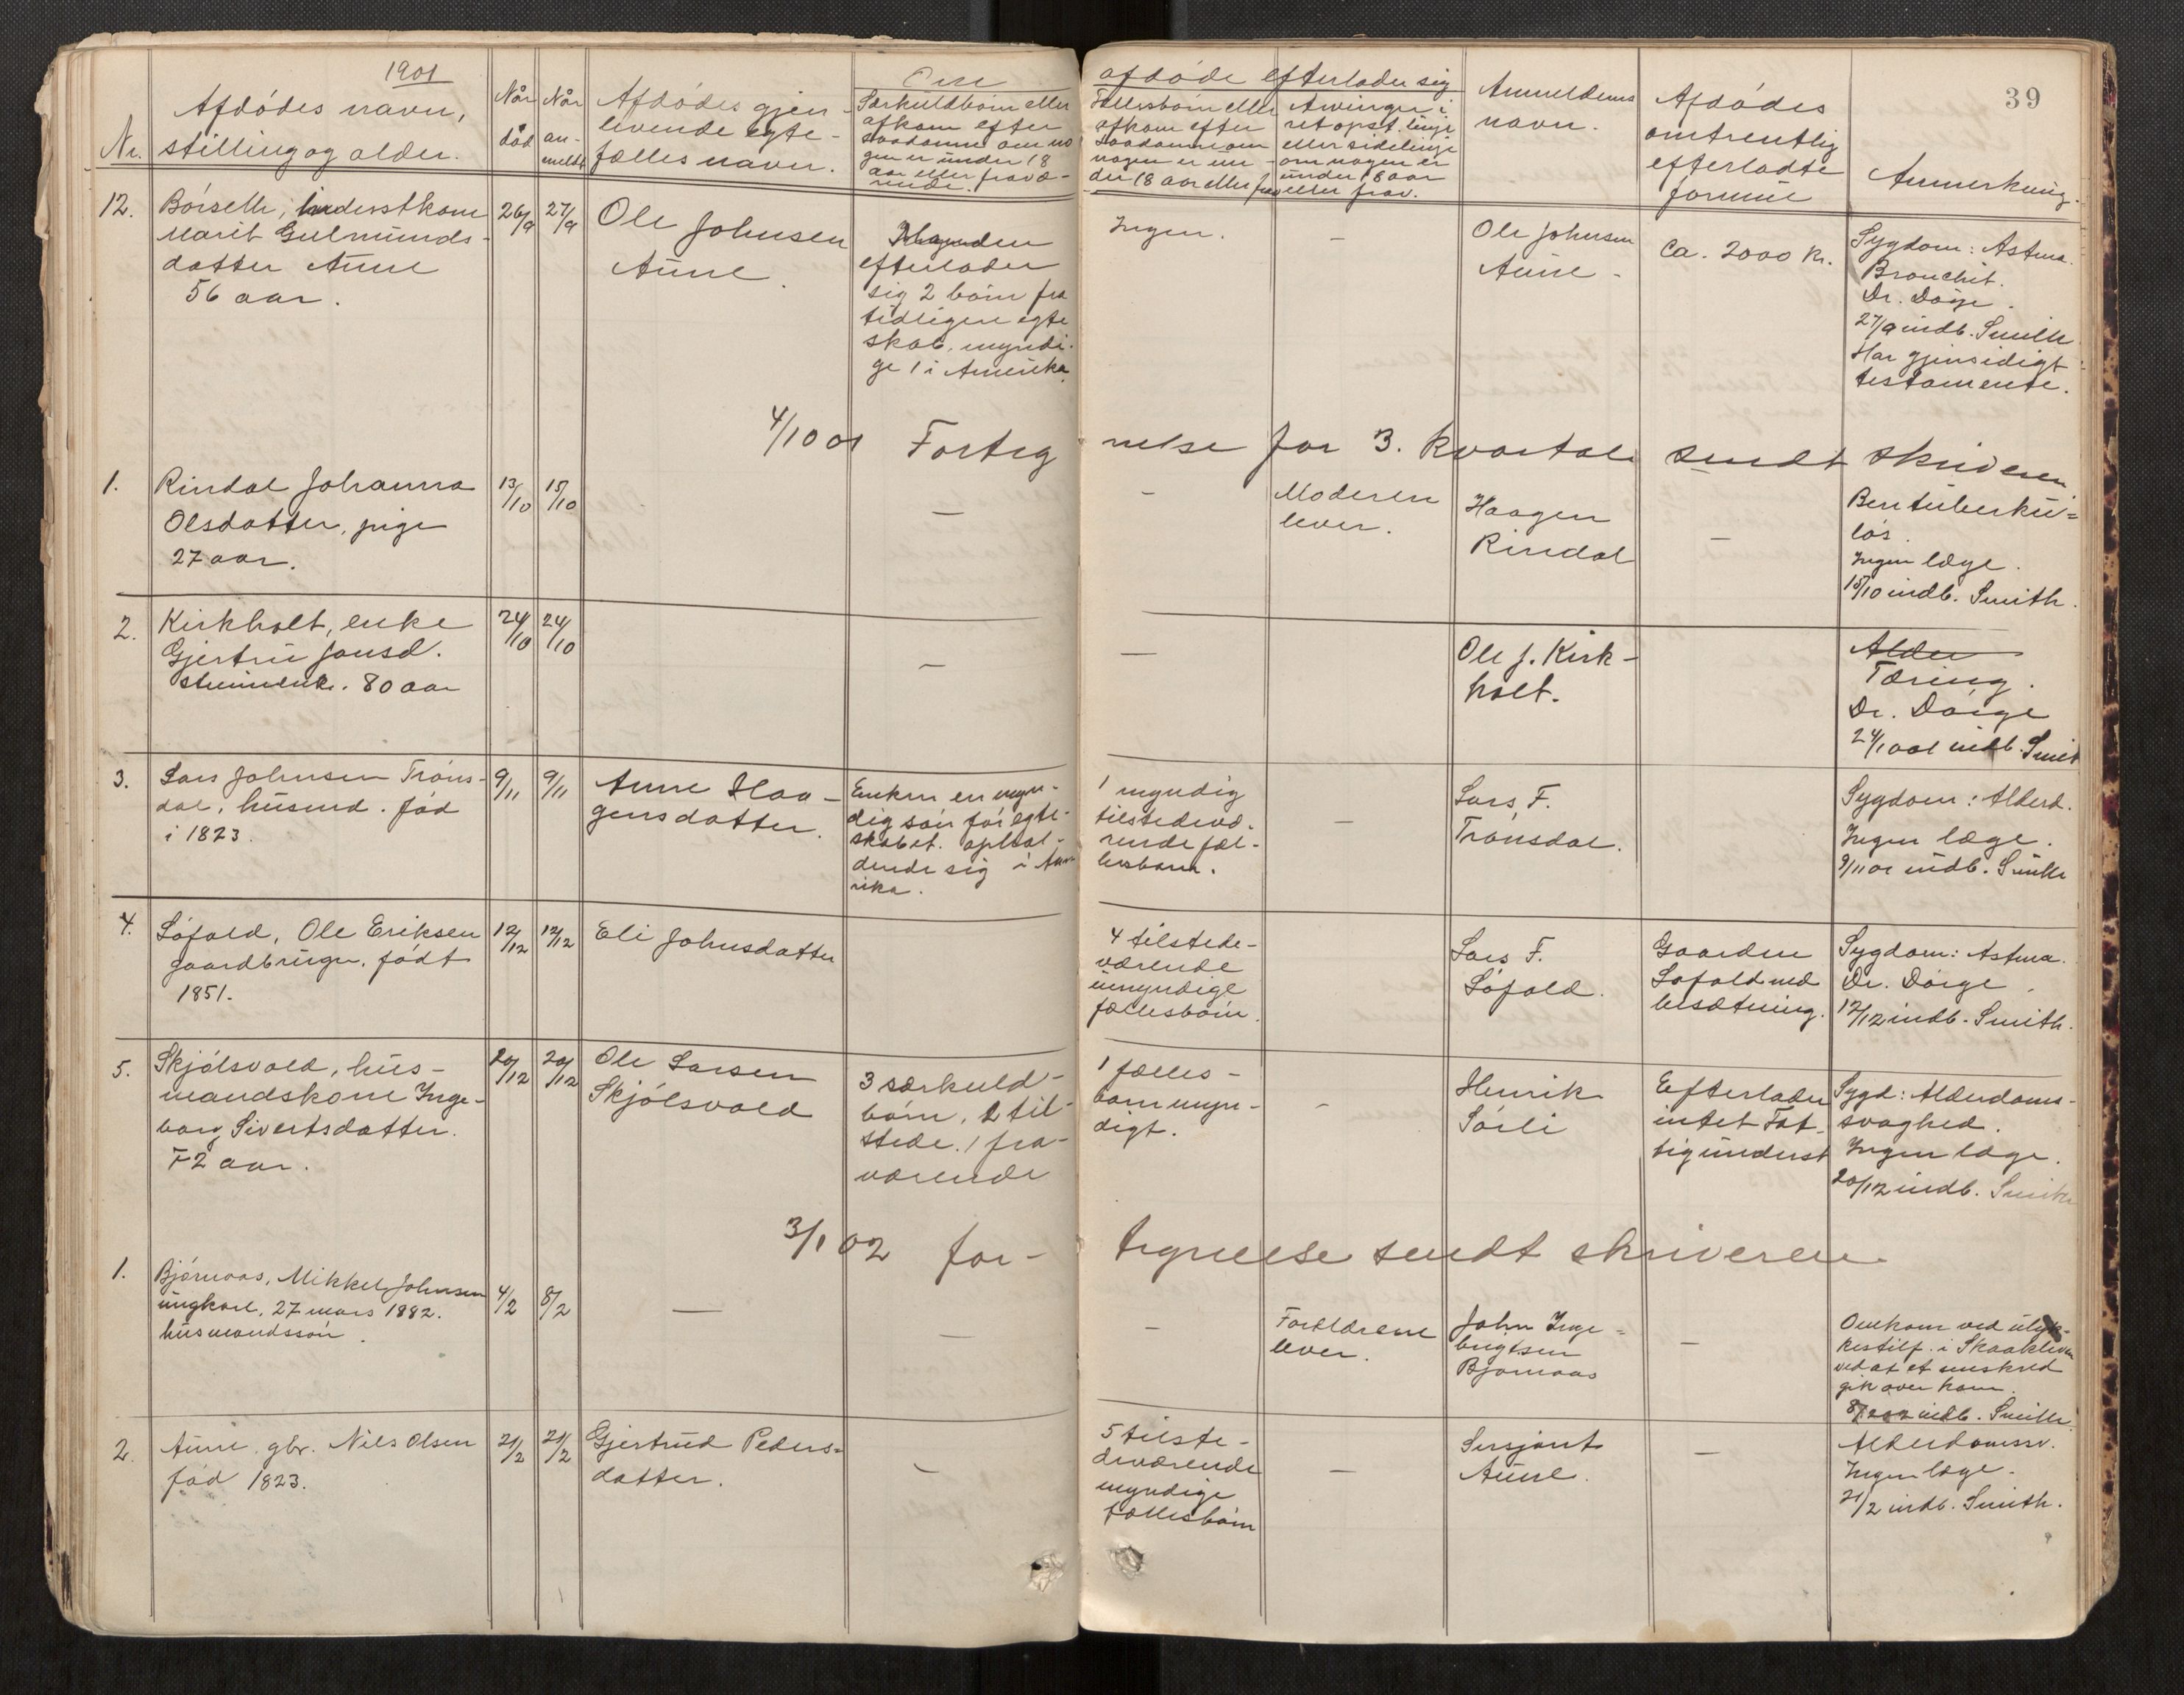 1901
39
Nr.
Afdødes navn,
stilling og alder.
Når
død
Når
an-
meldt
Afdødes gjen-
levende egte-
fælles navn.
Om afdøde efterlader sig
Særkuldbørn eller
afkom efter
saadanne om no
gen er under 18
aar eller fravæ-
rende.
Fællesbørn eller
afkom efter
saadanne om
nogen er un-
der 18 aar eller frav
Arvinger i
ret opst. linje
eller sidelinje
om nogen er
under 18 aar
eller frav.
Anmelderens
navn.
Afdødes
omtrentlig
efterladte
formue
Anmerkning.
12.
Börseth, inderstkone
Marit Gulmunds-
datter Aune
56 aar.
26/9
27/9
Ole Johnsen
Aune.
efterlader
sig 2 børn fra
tidligere egte
skab, myndi-
ge 1 i Amerika
Ingen.
—
Ole Johnsen
Aune -
Ca. 2000 kr.
Sygdom: Astma.
Bronchit.
Dr. Döge.
27/9 indb. Smith
Har gjensidigt
testamente.
4/10 01 Forteg nelse for 3. kvartal sendt skriveren
1.
Rindal Johanna
Olsdatter, pige
27 aar.
13/10
15/10
—
-
Moderen
lever.
Haagen
Rindal
—
Bentuberku=
løs.
Ingen læge.
15/10 indb. Smith.
2.
Kirkholt, enke
Gjertru Jonsd.
80 aar
24/10
24/10
—
—
Ole J. Kirk-
holt.
Alder
Tæring.
Dr. Döige
24/10 01 indb. Smit
3.
Lars Johnsen Tröns-
dal, husmd. fød
i 1823.
9/11
9/11
Anne Haa-
gensdatter.
Enken en myn-
dig søn før egte-
skabet. ophol-
dende sig i Am
rika.
1 myndig
tilstedevæ-
rende fæl-
lesbarn.
—
Lars F.
Trönsdal.
Sygdom: Alderd.
Ingen læge.
9/11 01 indb. Smith
4.
Löfald, Ole Eriksen
gaardbruger, født
1851.
12/12
12/12
Eli Johnsdatter
4 tilstede-
værende
umyndige
fællesbørn.
Lars F.
Löfald.
Gaarden
Løfald med
besætning.
Sygdom: Astma.
Dr. Döige.
12/12 indb. Smith.
5.
Skjölsvold, hus-
mandskone Inge-
borg Sivertsdatter.
72 aar.
20/12
20/12
Ole Larsen
Skjölsvold
3 særkuld-
børn, 2 til-
stede. 1 fra-
værende
1 fælles-
barn myn-
digt.
-
Henrik
Sörli
Efterlader
intet Fat-
tigunderst
Sygd: Alderdoms-
svaghed.
Ingen læge.
20/12 indb. Smith
3/1 02 for- tegnelse sendt skriveren
1.
Björnaas, Mikkel Johnsen
ungkarl, 27 mars 1882.
husmandssøn.
4/2
8/2
—
—
-
Forældrene
lever.
John Inge=
brigtsen
Bjørnaas
—
Omkom ved ulyk-
kestilf. i Skaakleven
ved at et sneskred
gik over ham.
8/2 02 indb. Smith
2.
Aune gbr. Nils Olsen
fød 1823.
21/2
21/2
Gjertrud Peders-
datter.
-
5 tilste-
deværende
myndige
fællesbørn
—
Sersjant
Aune.
—
Alderdomssv.
Ingen læge.
21/2 indb. Smith.